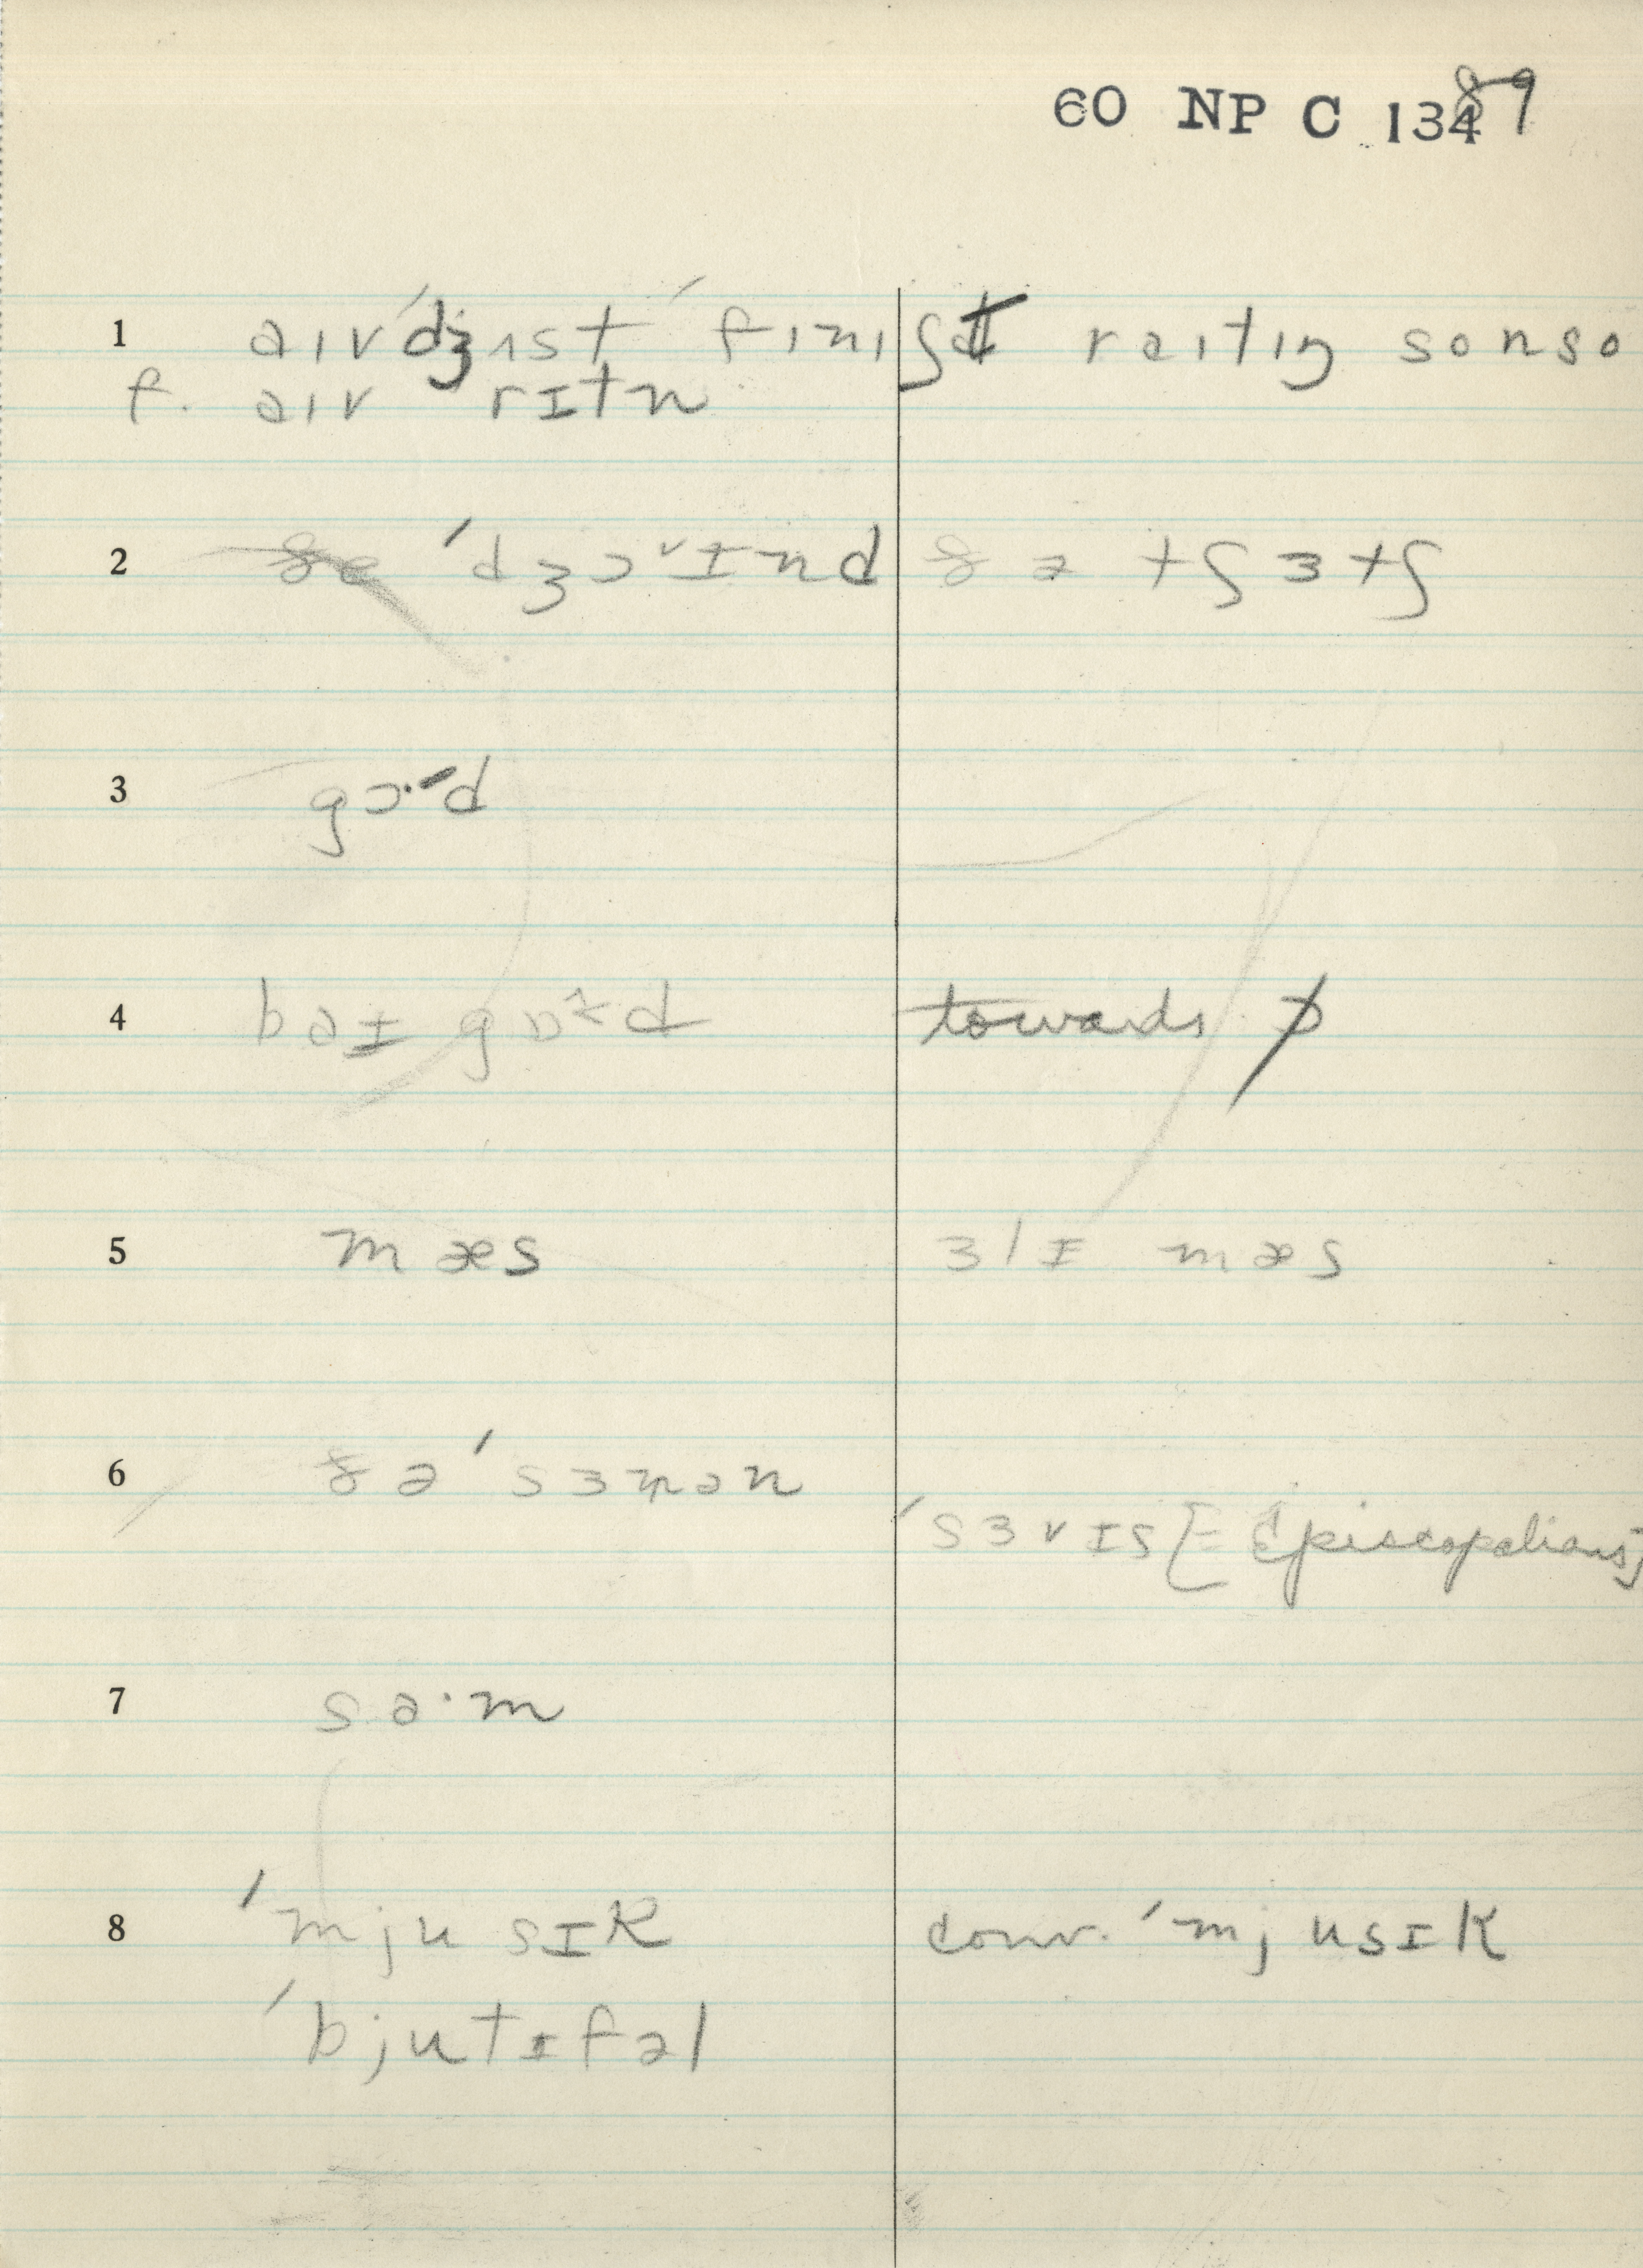 60 NP C 13489
1 aɪv ˈdʒʌst ˈfɪnɪʃt raɪtɪŋ so n so
f. aɪv rɪtn
2 ðə ˈdʒɔˇɪnd ðə tʃɜtʃ
3 gɔ·d
4 baɪ gɒd towards ɔ
5 mæs ɜlɪ mæs
6 ðə ˈsɜmən
ˈsɜvɪs [= Episcopalians]
7 sa·m
8 ˈmjusɪk conv. ˈmjusɪk
ˈbjutɪfəl